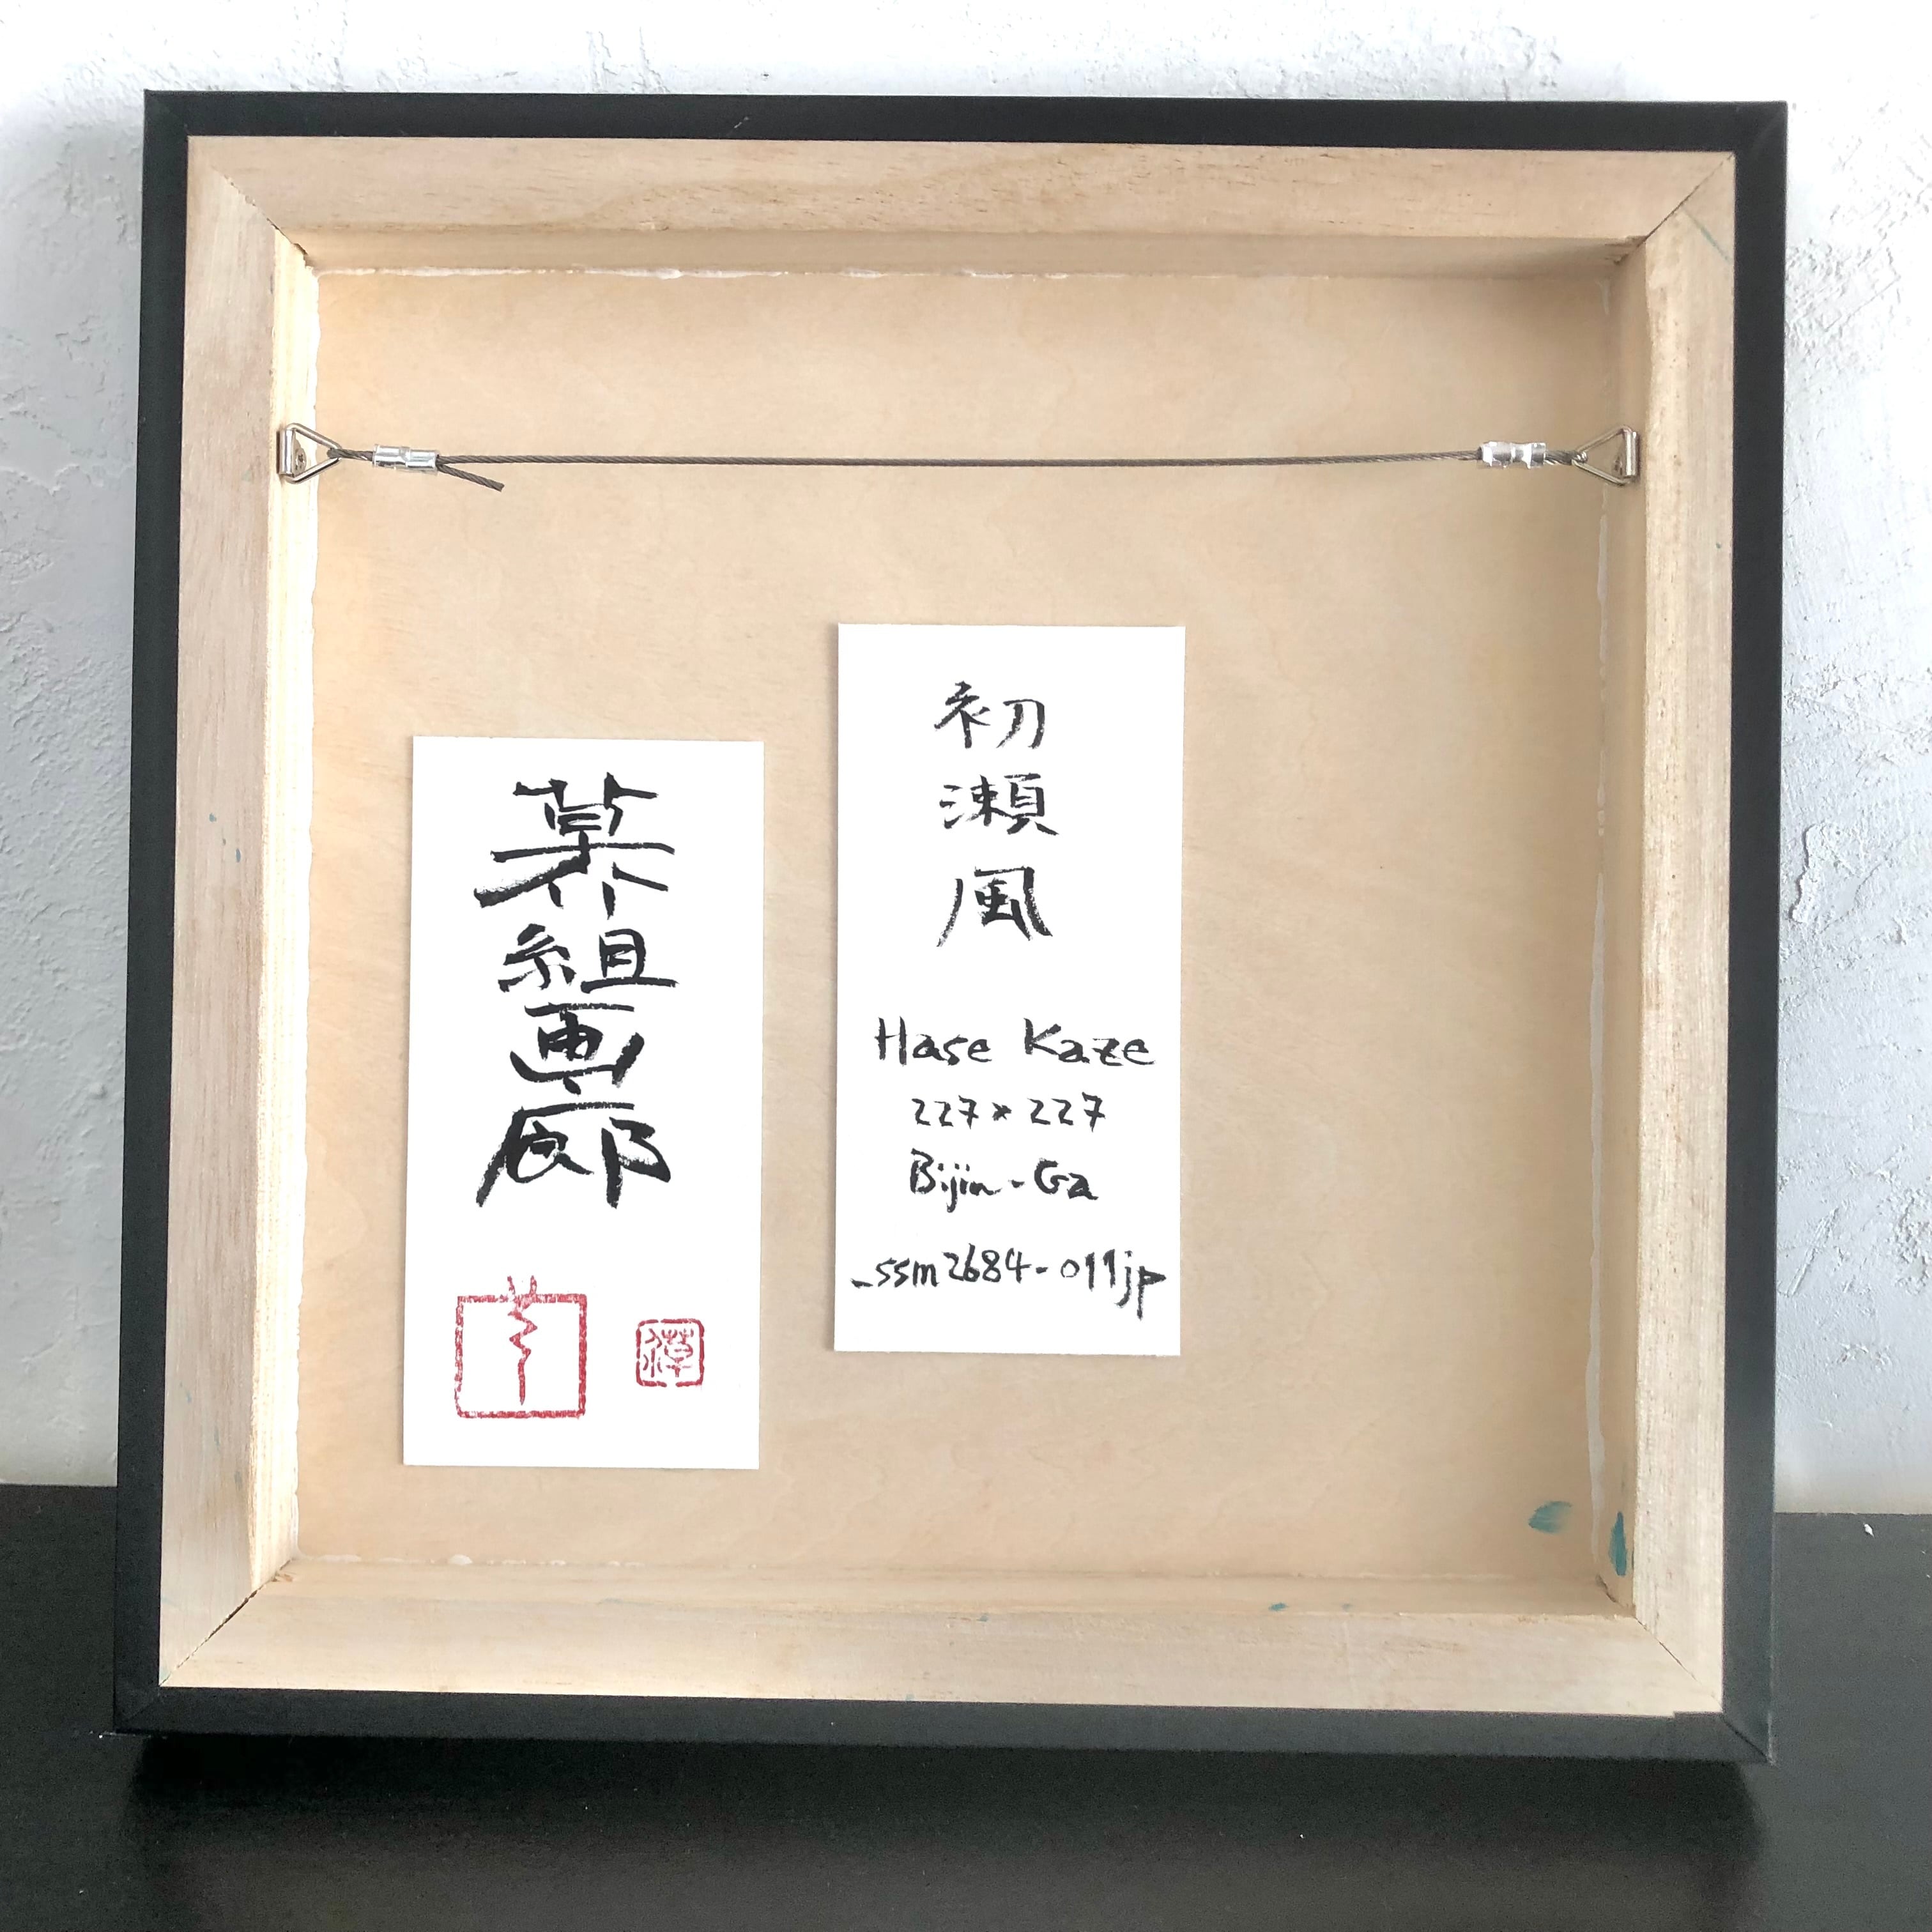 組画廊
初瀬風
Hase Kaze
227×227
Bijin-Ga
_ssm2684-011jp